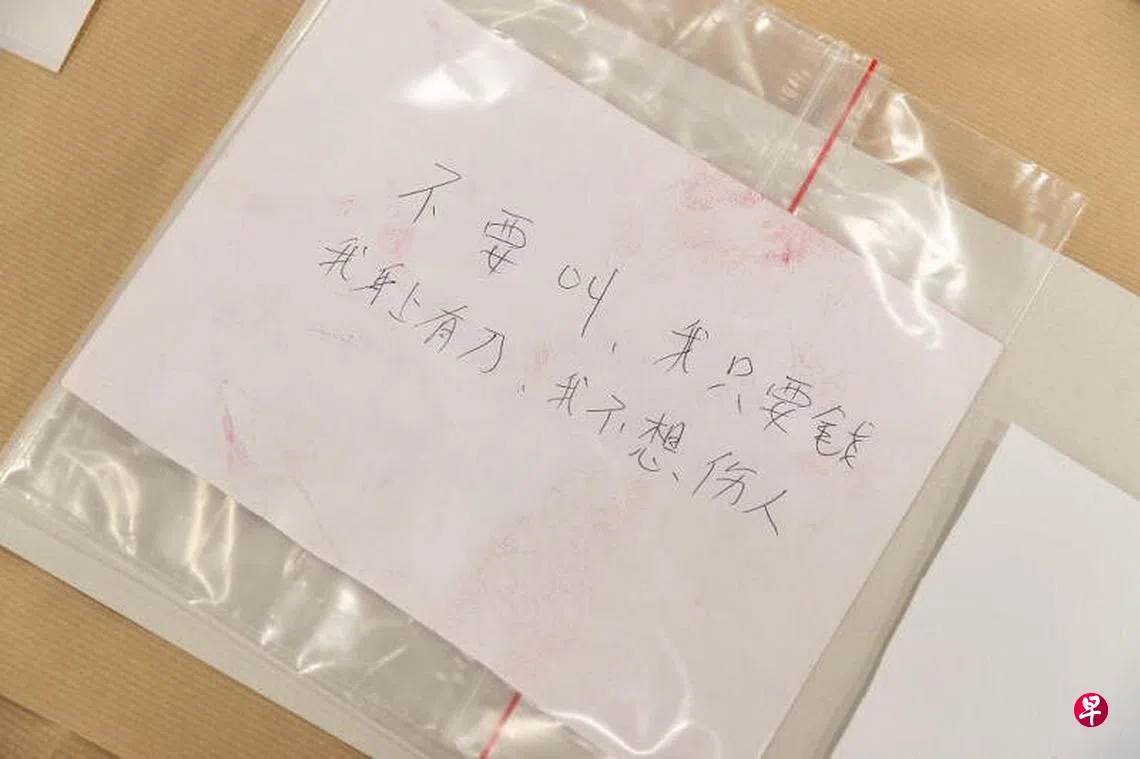 不要叫,我只要钱
我身上有刀,我不想伤人
早